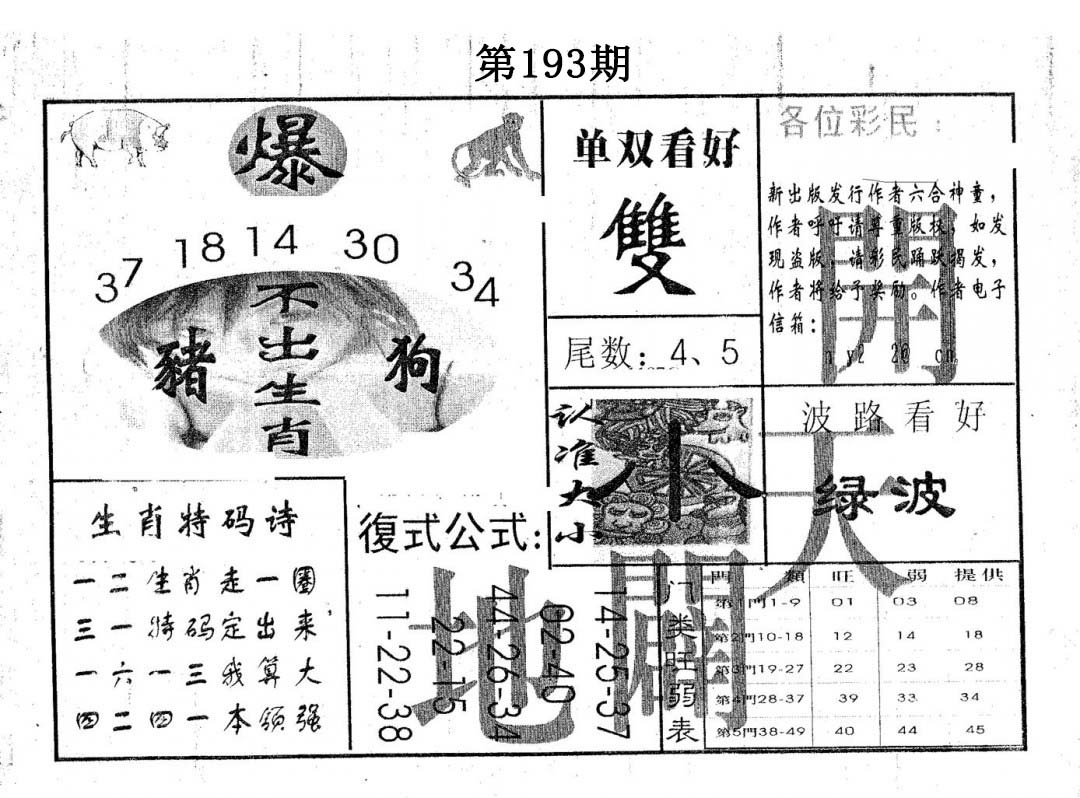 第193期
爆
37 18 14 30 34
不出生肖
豬
狗
单双看好
雙
尾数：4、5
各位彩民：
新出版发行作者六合神童，
作者呼吁请尊重版权，如发
现盗版，请彩民踊跃揭发，
作者将给予奖励。作者电子
信箱：
認准大小
小
波路看好
绿波
開天
闢地
生肖特码诗
一二生肖走一圈
三一特码定出来
一六一三我算大
四二四一本领强
復式公式：
11-22-38
22-15
44-26-34
02-40
14-25-37
门类旺弱表
門類 旺 弱 提供
第1門1-9 01 03 08
第2門10-18 12 14 18
第3門19-27 22 23 28
第4門28-37 39 33 34
第5門38-49 40 44 45